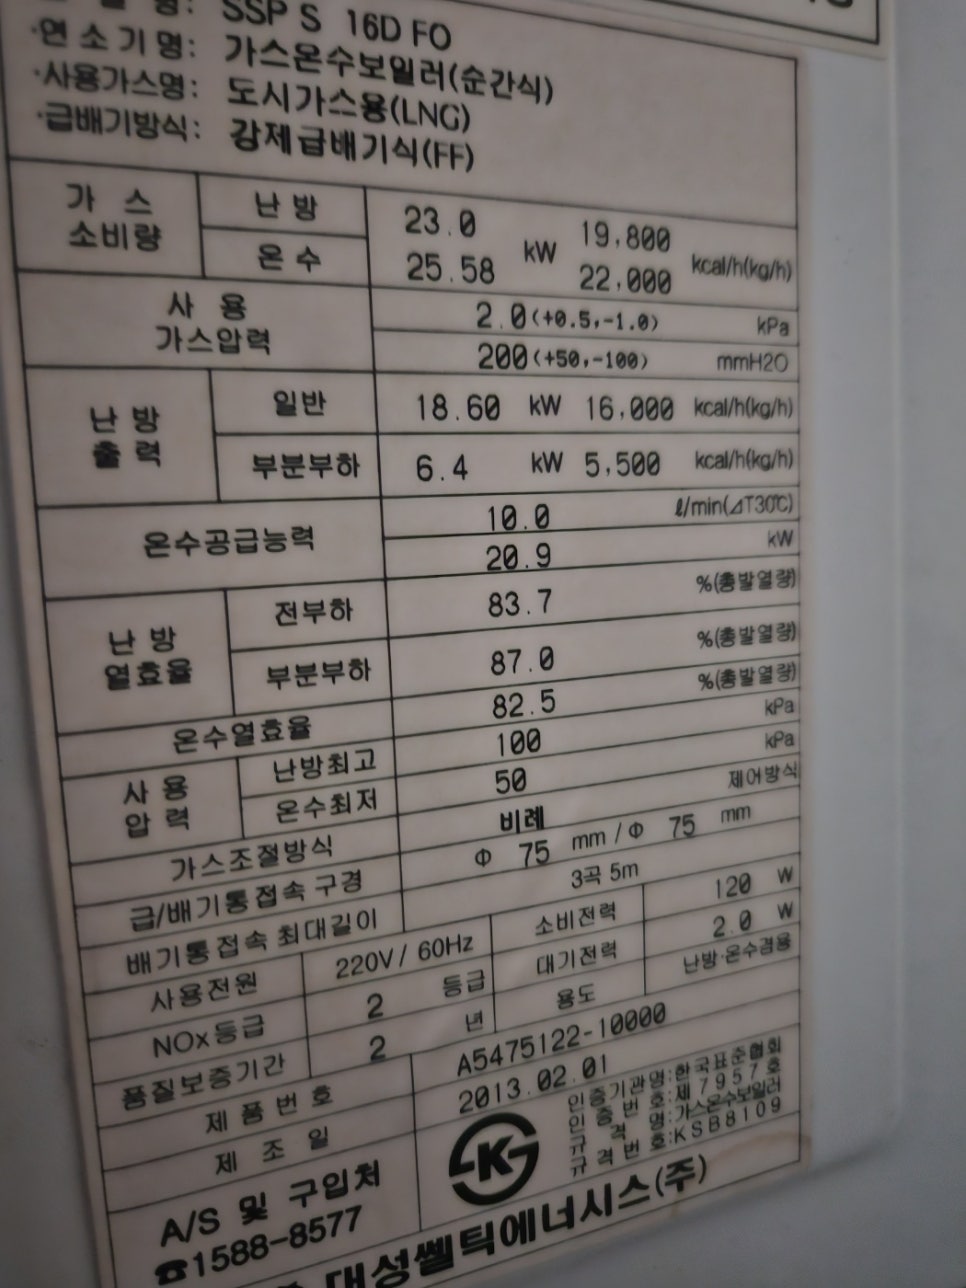 명: SSP S 16D FO
·연소기명: 가스온수보일러(순간식)
·사용가스명: 도시가스용(LNG)
·급배기방식: 강제급배기식(FF)
가 스 소비량 난방 23.0 kW 19,800 kcal/h(kg/h)
온수 25.58 22,000
사 용 가스압력 2.0(+0.5,-1.0) kPa
200(+50,-100) mmH2O
난 방 출 력 일반 18.60 kW 16,000 kcal/h(kg/h)
부분부하 6.4 kW 5,500 kcal/h(kg/h)
온수공급능력 10.0 ℓ/min(⊿T30℃)
20.9 kW
난 방 열효율 전부하 83.7 %(총발열량)
부분부하 87.0 %(총발열량)
온수열효율 82.5 %(총발열량)
사 용 압 력 난방최고 100 kPa
온수최저 50 kPa
가스조절방식 비례 제어방식
급/배기통접속 구경 Φ 75 mm / Φ 75 mm
배기통접속 최대길이 3곡 5m
사용전원 220V / 60Hz 소비전력 120 W
NOx등급 2 등급 대기전력 2.0 W
품질보증기간 2 년 용도 난방·온수겸용
제 품 번 호 A5475122-10000
제 조 일 2013.02.01
A/S 및 구입처
☎1588-8577
인증기관명:한국표준협회
인증번호:제7957호
규격명:가스온수보일러
규격번호:KSB8109
대성쎌틱에너시스(주)